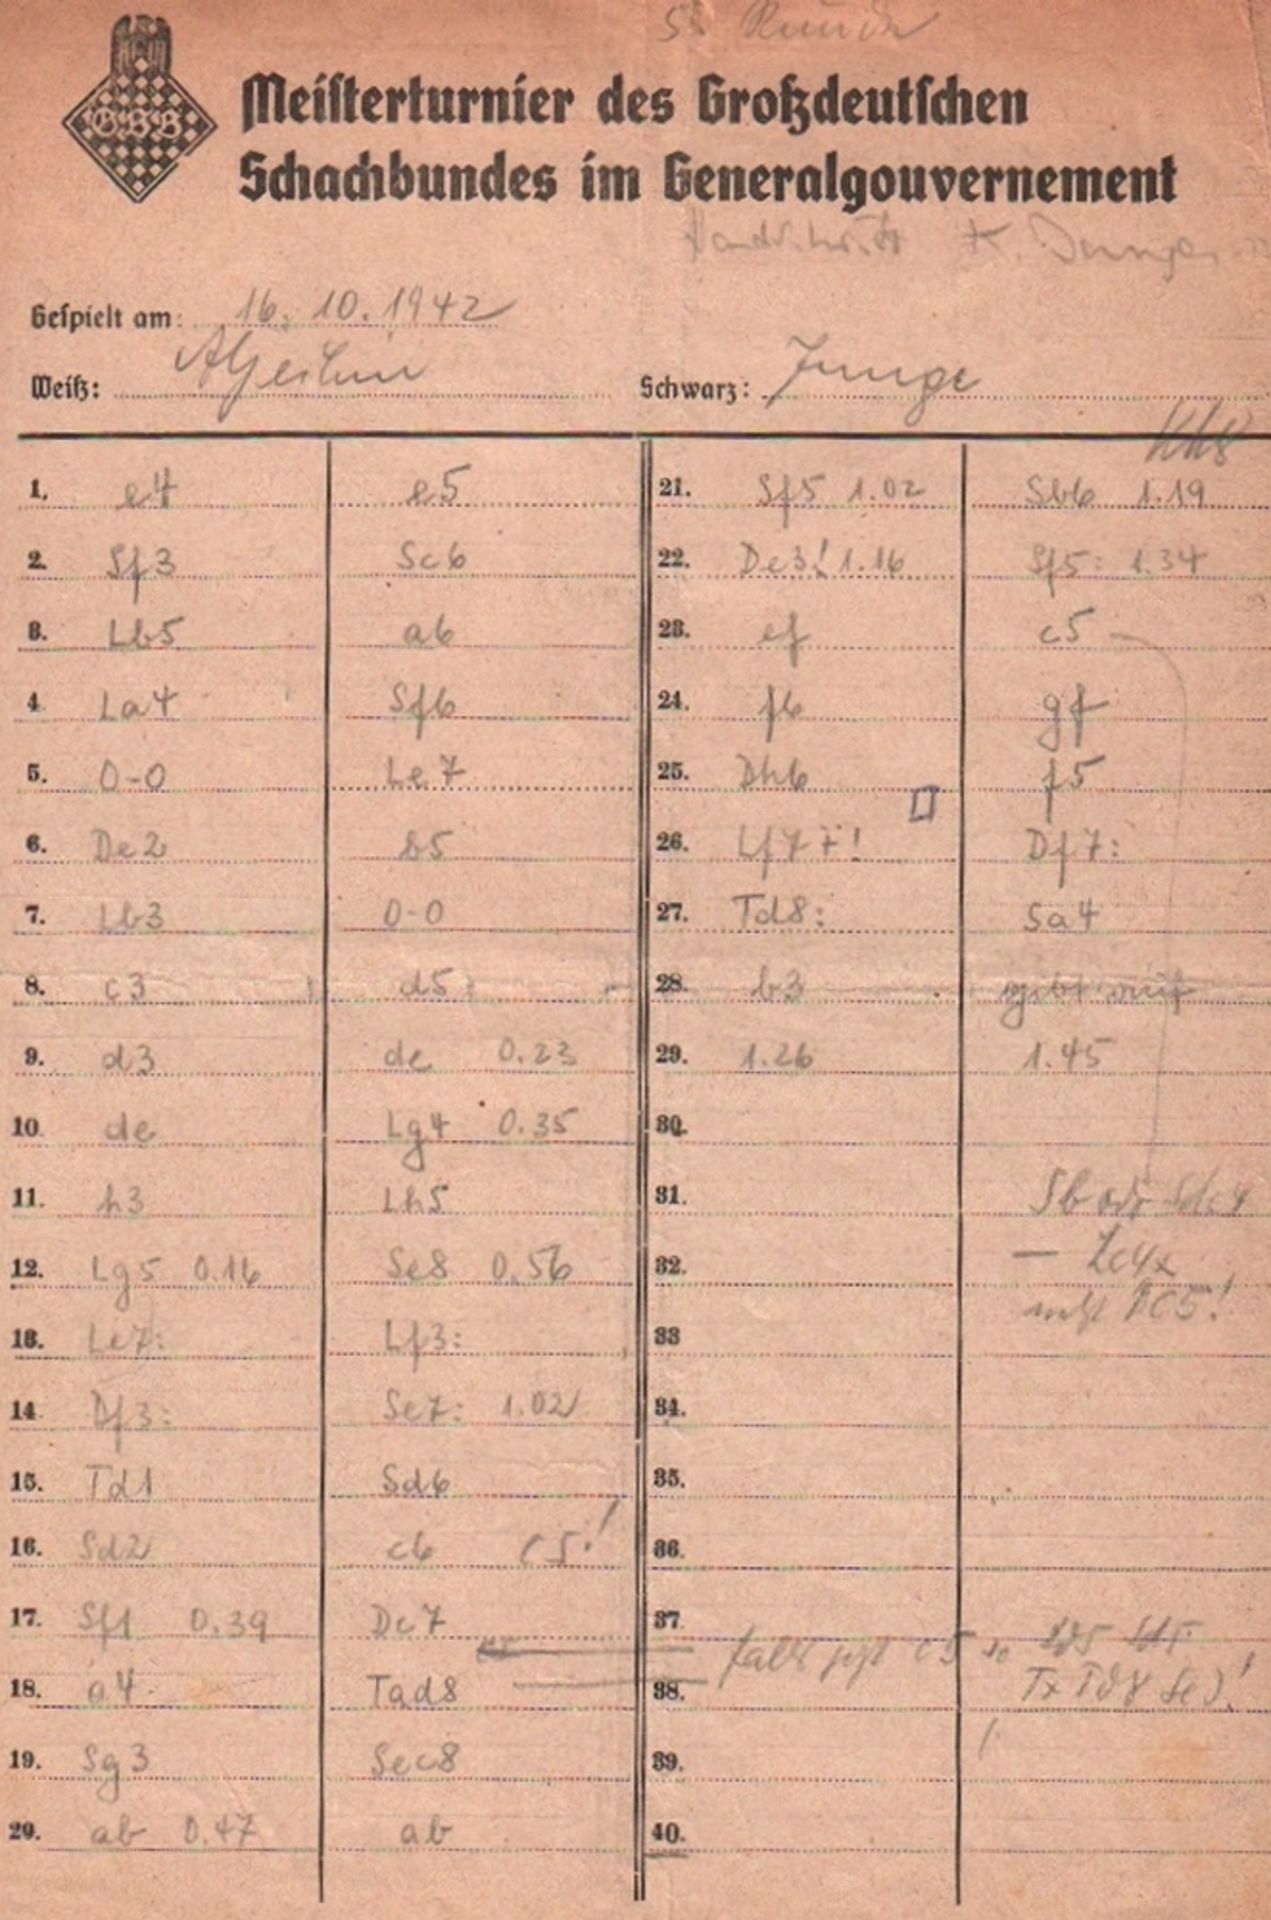 5. Runde
Meisterturnier des Großdeutschen
Schachbundes im Generalgouvernement
GSB
Handschrift K. Junge
Gespielt am: 16. 10. 1942
Weiß: Aljechin
Schwarz: Junge
Kh8
1. e4 e5
2. Sf3 Sc6
3. Lb5 a6
4. La4 Sf6
5. 0-0 Le7
6. De2 b5
7. Lb3 0-0
8. c3 d5
9. d3 de 0.23
10. de Lg4 0.35
11. h3 Lh5
12. Lg5 0.16 Se8 0.56
13. Le7: Lf3:
14. Df3: Se7: 1.02
15. Td1 Sd6
16. Sd2 c6 c5!
17. Sf1 0.39 Dc7
18. a4 Tad8
19. Sg3 Sec8
20. ab 0.47 ab
21. Sf5 1.02 Sb6 1.19
22. De3! 1.16 Sf5: 1.34
23. ef c5
24. f6 gf
25. Dh6 f5
26. Lf7+! Df7:
27. Td8: Sa4
28. b3 gibt auf
29. 1.26 1.45
30.
31. Sb oder Sdc4
32. — Lc4x
33
34.
35.
36.
37. falls c5 so
38.
39.
40.